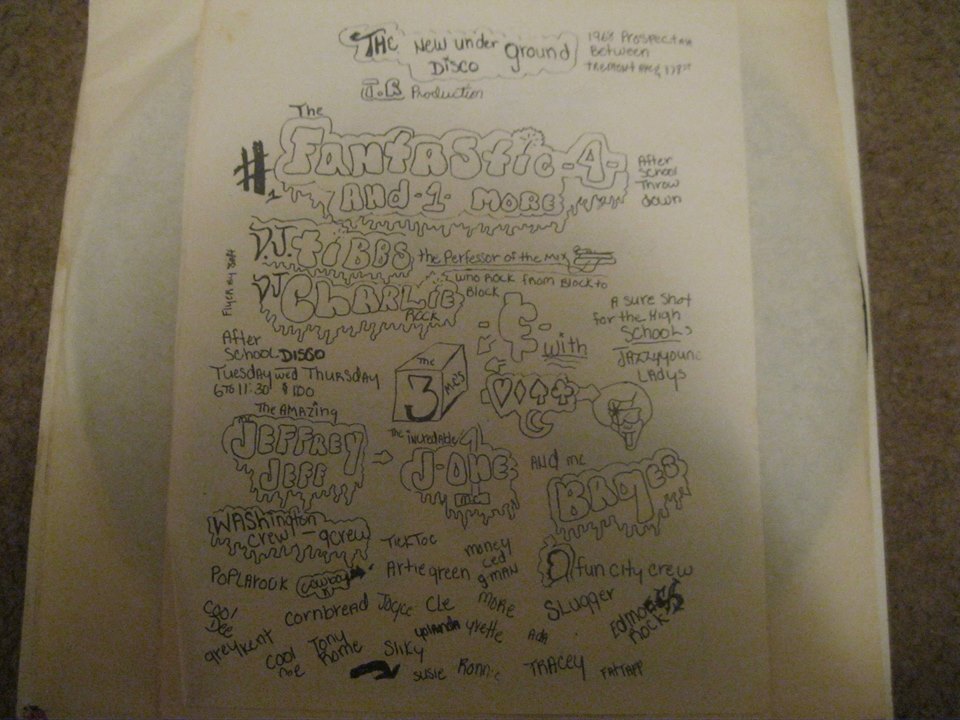 THE New under ground
DISCO
1968 Prospect Ave
Between
Tremont Ave
J.R Production
The
#1 FANTASTIC -4-
AND -1- MORE
After
School
Throw
down
D.J. TIBBS the Perfessor of the Mix
DJ CHARLIE ROCK
who Rock from Block to
Block
Flyer By Jeff
-E- with
A sure Shot
for the High
Schools
Jazzy young
Ladys
After
School DISCO
Tuesday wed Thursday
6 to 11:30 $1.00
The
3
MC's
The AMAZING
JEFFREY
JEFF
The incredable
J-ONE
And mc
WAShington
crew - qcrew
TickToc
Artie green
money
ced
g-man
fun city crew
POPLAROCK cowboy
cool
Dee
cornbread Joyce Cle MORE Slugger
greykent
cool
moe
Tony
Rome
Sliky
yolanda yvette Ada
Rock
susie Ronnie TRACEY